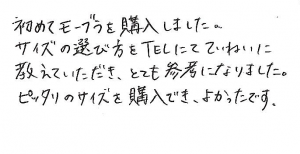 初めてモーブラを購入しました。
サイズの選び方をTELにてていねいに
教えていただき、とても参考になりました。
ピッタリのサイズを購入でき、よかったです。